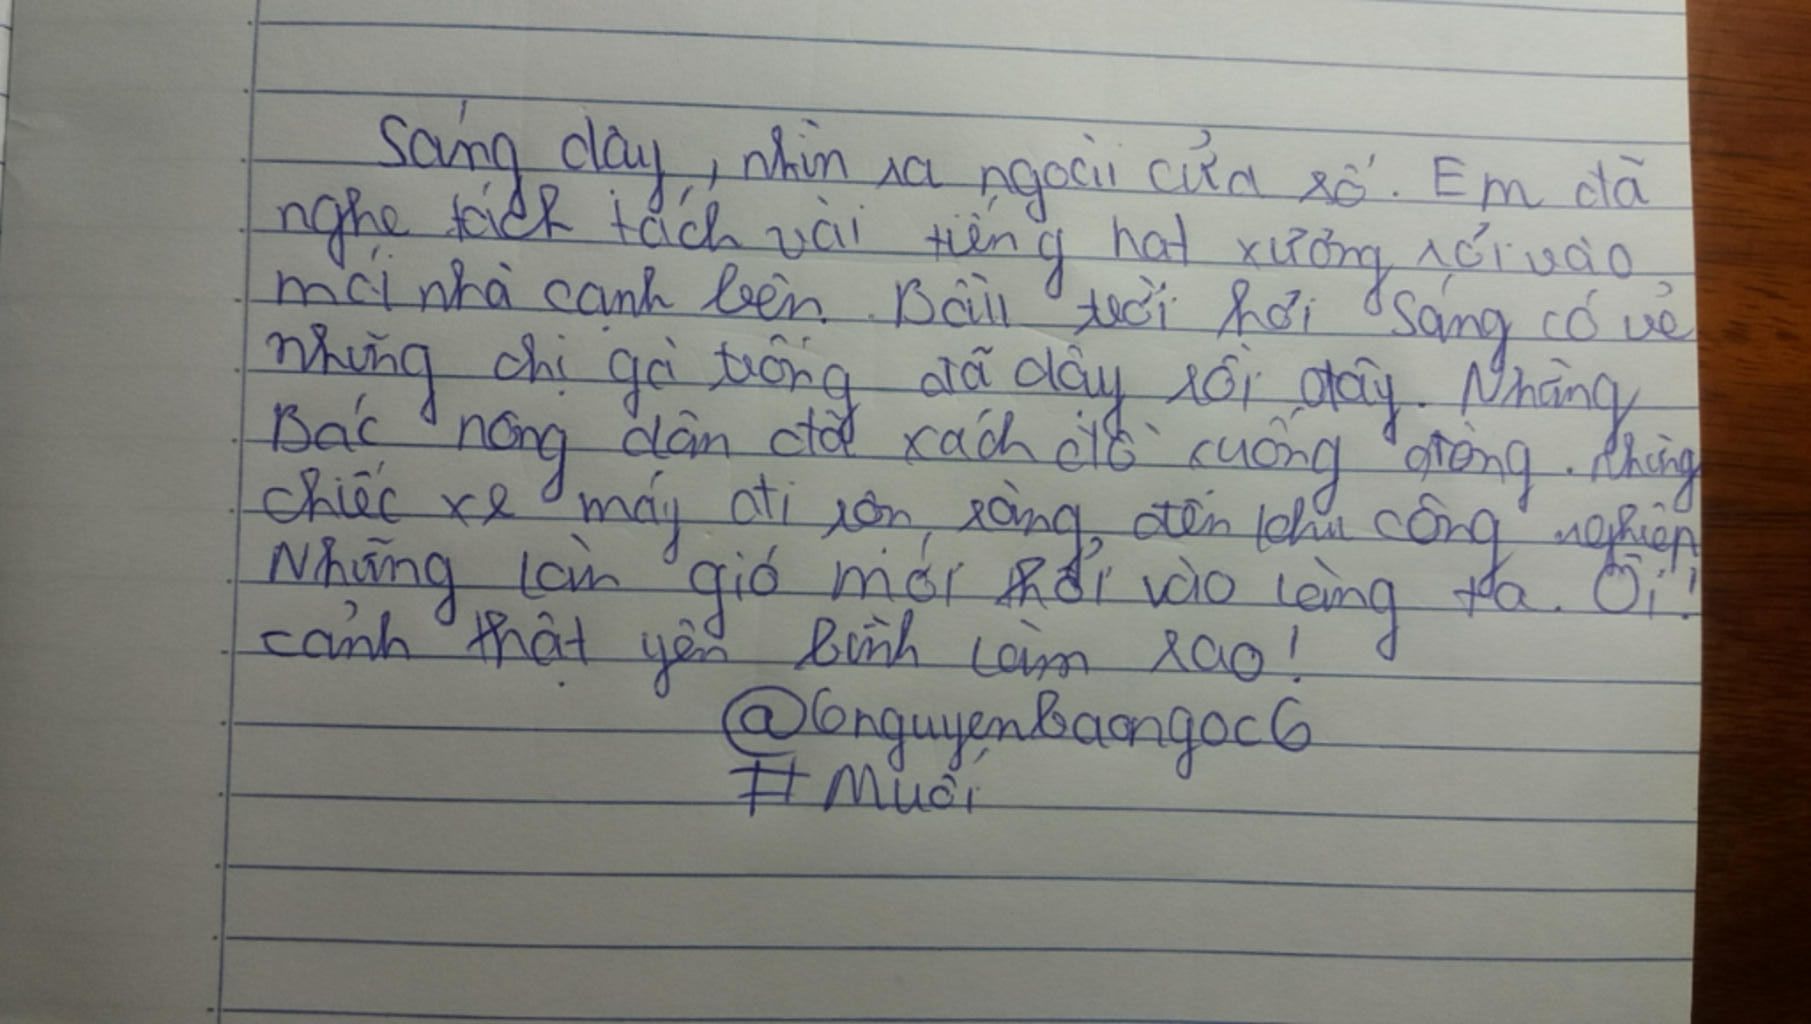 Sáng dây, nhìn ra ngoài cửa sổ. Em đã
nghe tách tách vài tiếng hạt xương rơi vào
mái nhà cạnh bên. Bầu trời hơi sáng có vẻ
những chị gà trống đã dậy rồi đấy. Những
Bác nông dân đã xách đồ xuống đồng. Những
chiếc xe máy đi rôn ràng đến khu công nghiệp
Những làn gió mới thổi vào lòng ta. Ôi!
cảnh thật yên bình làm sao!
@6nguyenbaongoc6
#Muối